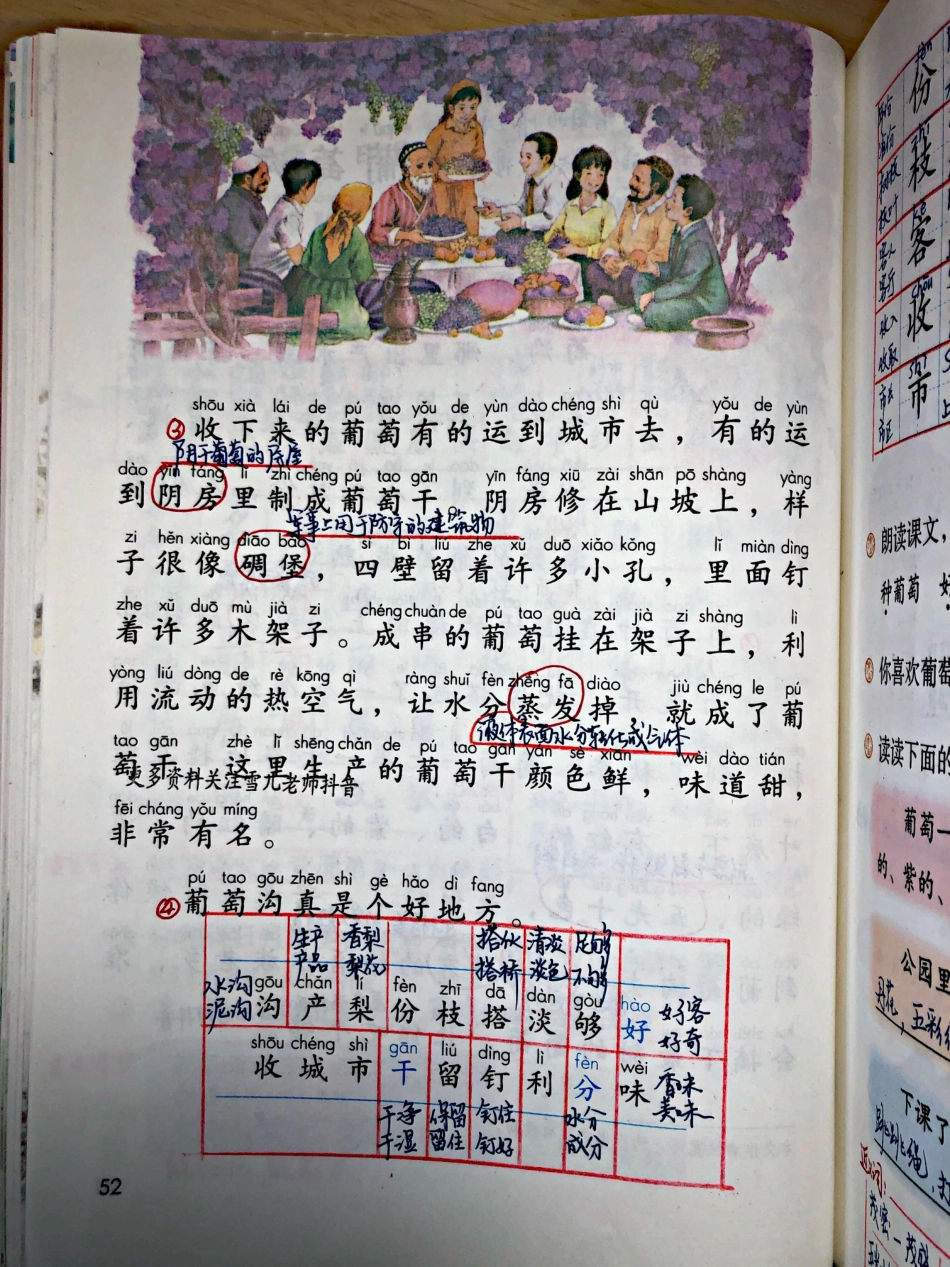 shōu xià lái de pú tao yǒu de yùn dào chéng shì qù yǒu de yùn
③收下来的葡萄有的运到城市去，有的运
阴干葡萄的房屋
dào yīn fáng lǐ zhì chéng pú tao gān yīn fáng xiū zài shān pō shàng yàng
到阴房里制成葡萄干 阴房修在山坡上，样
军事上用于防守的建筑物
zi hěn xiàng diāo bǎo sì bì liú zhe xǔ duō xiǎo kǒng lǐ miàn dìng
子很像碉堡，四壁留着许多小孔，里面钉
zhe xǔ duō mù jià zi chéng chuàn de pú tao guà zài jià zi shàng lì
着许多木架子。成串的葡萄挂在架子上，利
yòng liú dòng de rè kōng qì ràng shuǐ fèn zhēng fā diào jiù chéng le pú
用流动的热空气，让水分蒸发掉 就成了葡
液体表面水分转化成气体
tao gān zhè lǐ shēng chǎn de pú tao gān yán sè xiān wèi dào tián
萄干 这里生产的葡萄干颜色鲜，味道甜，
更多资料关注雪儿老师抖音
fēi cháng yǒu míng
非常有名。
pú tao gōu zhēn shì gè hǎo dì fang
④葡萄沟真是个好地方。
生产 香梨 搭伙 清淡 足够
产品 梨花 搭桥 淡色 不够
水沟 gōu chǎn lí fèn zhī dā dàn gòu hào 好客
泥沟 沟产梨份枝搭淡够好 好奇
shōu chéng shì gān liú dìng lì fèn wèi
收城市干留钉利分味 香味
美味
干净 保留 钉住 水分
干湿 留住 钉好 成分
52
份
枝
客
收
市
朗读课文，
种葡萄
你喜欢葡萄
读读下面的
葡萄
的、紫的、
公园里
花，五彩
下课了
跳跳绳，